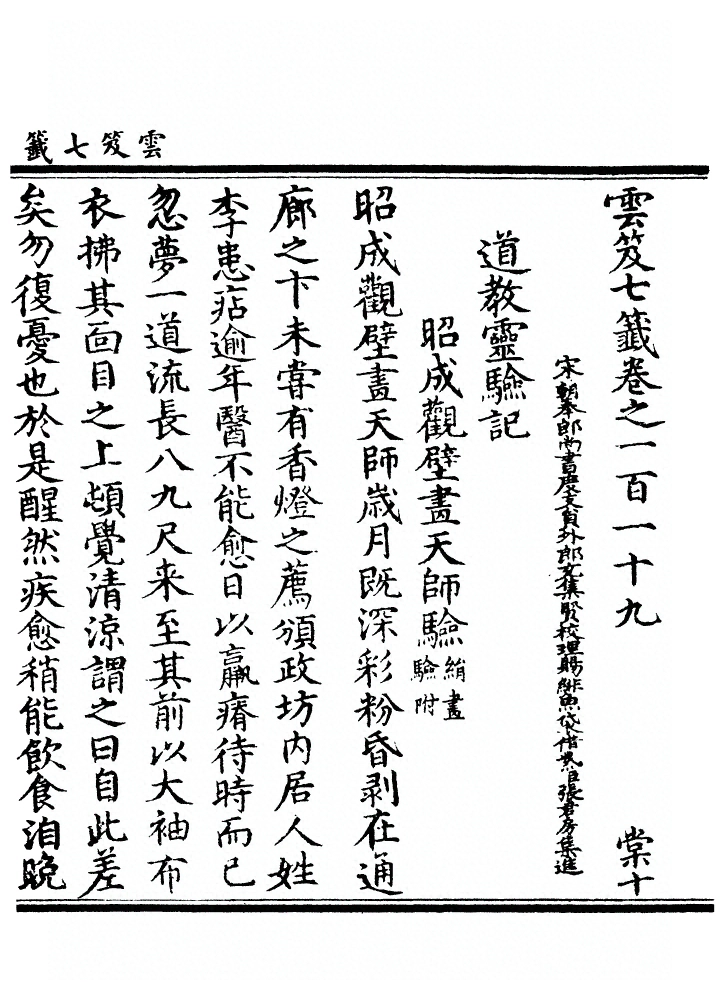 雲笈七籤
雲笈七籤卷之一百一十九　棠十
宋朝奉郎尚書度支員外郎充集賢校理賜緋魚袋借紫臣張君房集進
道教靈驗記
昭成觀壁畫天師驗絹畫驗附
昭成觀壁畫天師歲月既深彩粉昏剥在通
廊之下未嘗有香燈之薦頒政坊内居人姓
李患痁逾年醫不能愈日以羸瘠待時而已
忽夢一道流長八九尺来至其前以大袖布
衣拂其面目之上頓覺清涼謂之曰自此差
矣勿復憂也於是醒然疾愈稍能飲食洎晚